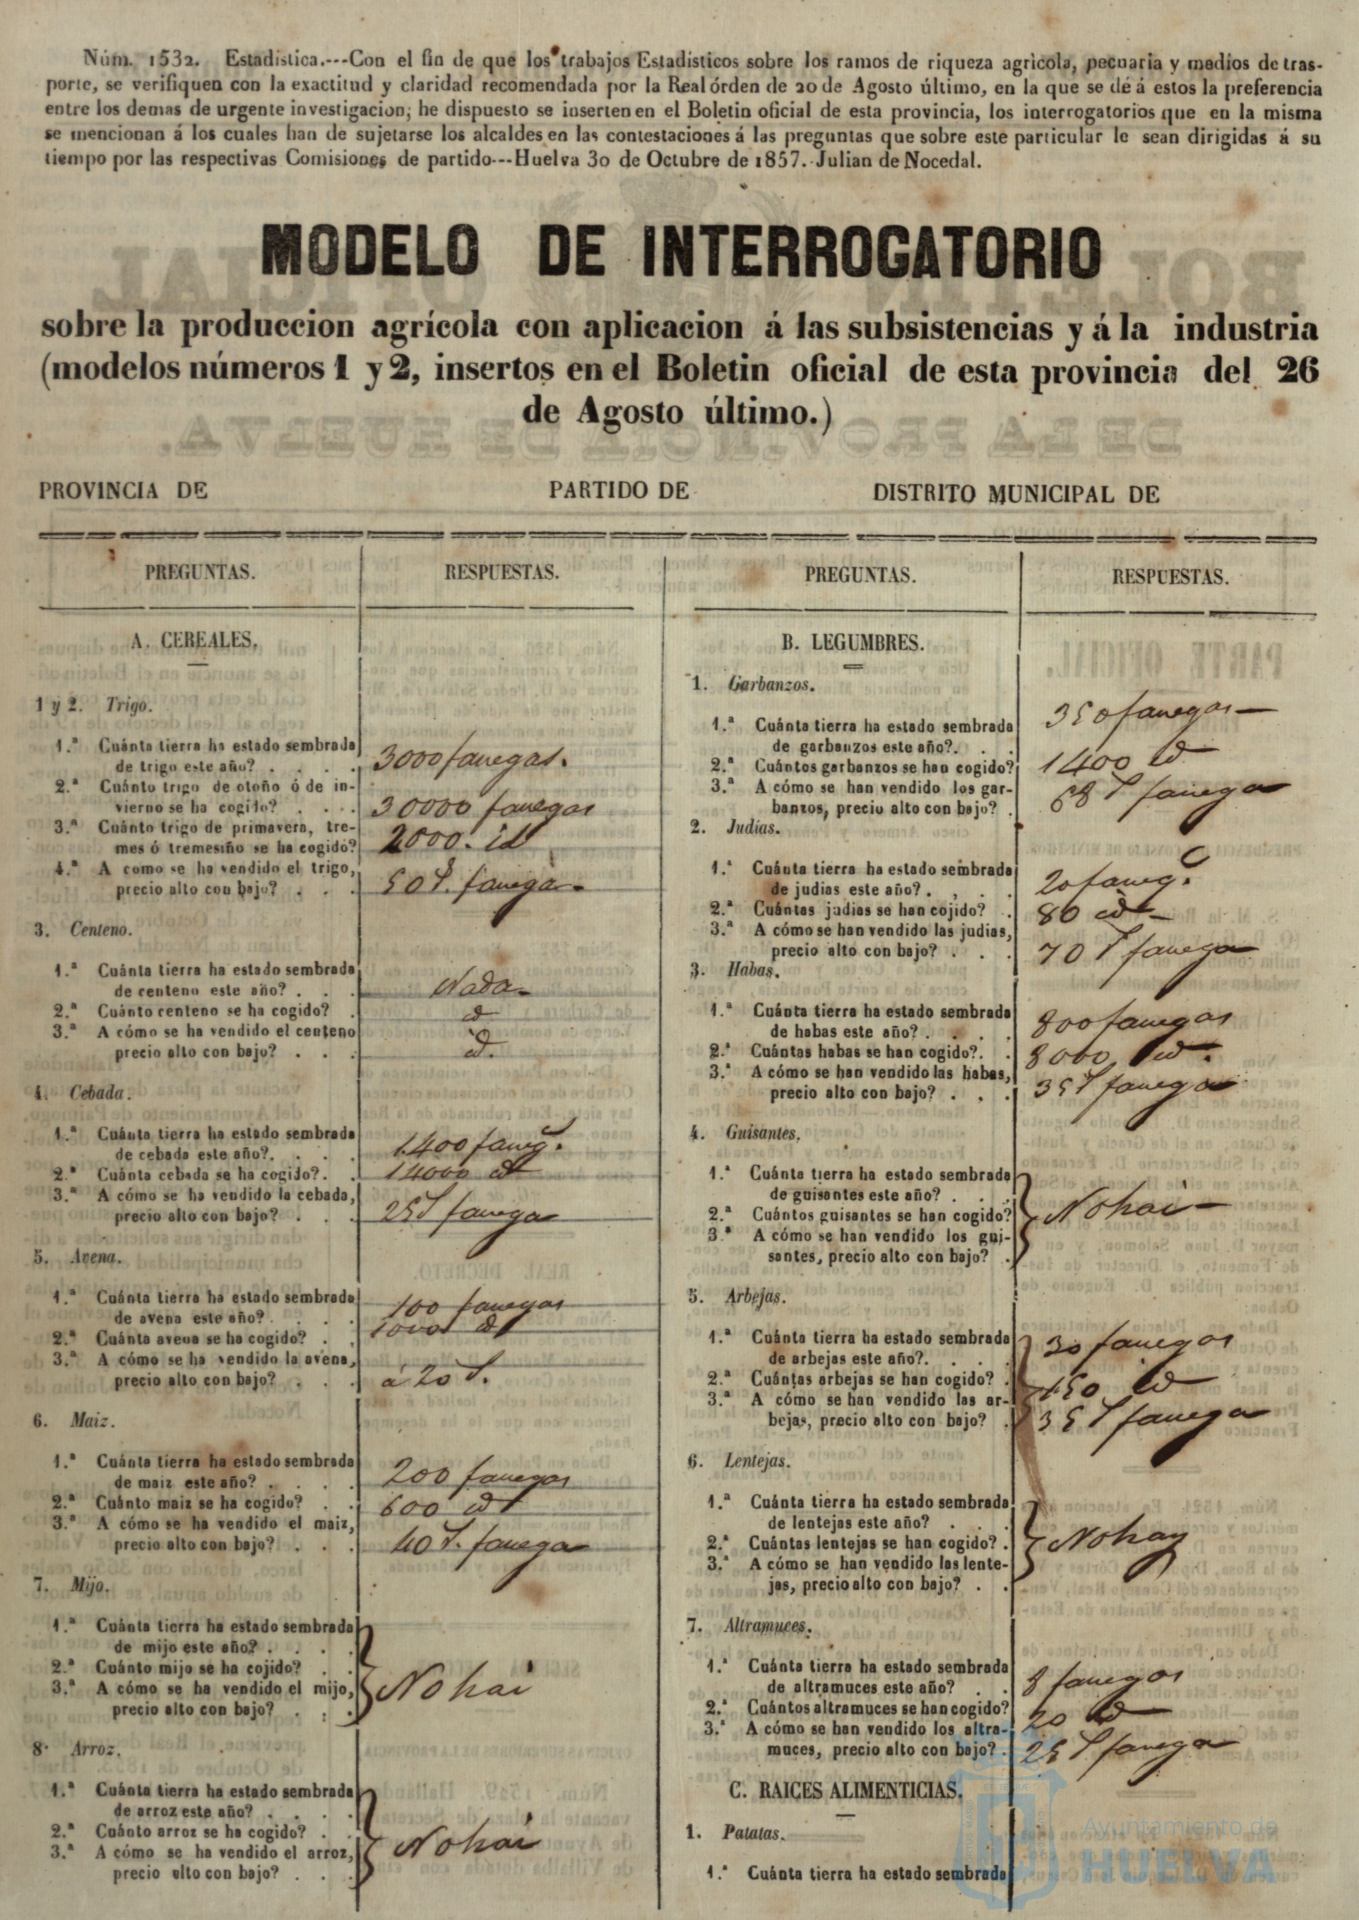 Núm. 1532. Estadística.---Con el fin de que los trabajos Estadísticos sobre los ramos de riqueza agricola, pecuaria y medios de tras-
porte, se verifiquen con la exactitud y claridad recomendada por la Real órden de 20 de Agosto último, en la que se dé á estos la preferencia
entre los demas de urgente investigacion; he dispuesto se inserten en el Boletin oficial de esta provincia, los interrogatorios que en la misma
se mencionan á los cuales han de sujetarse los alcaldes en las contestaciones á las preguntas que sobre este particular le sean dirigidas á su
tiempo por las respectivas Comisiones de partido---Huelva 30 de Octubre de 1857. Julian de Nocedal.
MODELO DE INTERROGATORIO
sobre la produccion agrícola con aplicacion á las subsistencias y á la industria
(modelos números 1 y 2, insertos en el Boletin oficial de esta provincia del 26
de Agosto último.)
PROVINCIA DE PARTIDO DE DISTRITO MUNICIPAL DE
PREGUNTAS. RESPUESTAS.
A. CEREALES.
1 y 2. Trigo.
1.ª Cuánta tierra ha estado sembrada
de trigo este año? . . . . 3000 fanegas.
2.ª Cuánto trigo de otoño ó de in-
vierno se ha cogido? . . . 30000 fanegas
3.ª Cuánto trigo de primavera, tre-
mes ó tremesiño se ha cogido? 2000. id
4.ª A como se ha vendido el trigo,
precio alto con bajo? . . . 50 fanega
3. Centeno.
1.ª Cuánta tierra ha estado sembrada
de centeno este año? . . . Nada
2.ª Cuánto centeno se ha cogido? . id
3.ª A cómo se ha vendido el centeno
precio alto con bajo? . . . id.
4. Cebada.
1.ª Cuánta tierra ha estado sembrada
de cebada este año? . . . 1400 faneg.s
2.ª Cuánta cebada se ha cogido? . . 14000 id
3.ª A cómo se ha vendido la cebada,
precio alto con bajo? . . . 25 fanega
5. Avena.
1.ª Cuánta tierra ha estado sembrada
de avena este año? . . . . 100 fanegas
2.ª Cuánta avena se ha cogido? . . 1000 id
3.ª A cómo se ha vendido la avena,
precio alto con bajo? . . . á 20
6. Maiz.
1.ª Cuánta tierra ha estado sembrada
de maiz este año? . . . . 200 fanegas
2.ª Cuánto maiz se ha cogido? . . 600 id
3.ª A cómo se ha vendido el maiz,
precio alto con bajo? . . . 40 fanega
7. Mijo.
1.ª Cuánta tierra ha estado sembrada
de mijo este año? . . . .
2.ª Cuánto mijo se ha cojido? . .
3.ª A cómo se ha vendido el mijo, No hai
precio alto con bajo? . . .
8. Arroz.
1.ª Cuánta tierra ha estado sembrada
de arroz este año? . . . .
2.ª Cuánto arroz se ha cogido? . . No hai
3.ª A cómo se ha vendido el arroz,
precio alto con bajo? . . .
PREGUNTAS. RESPUESTAS.
B. LEGUMBRES.
1. Garbanzos.
1.ª Cuánta tierra ha estado sembrada
de garbanzos este año? . . . 350 fanegas
2.ª Cuántos garbanzos se han cogido? 1400 id
3.ª A cómo se han vendido los gar-
banzos, precio alto con bajo? . 68 fanega
2. Judías.
1.ª Cuánta tierra ha estado sembrada
de judias este año? . . . . 20 faneg.s
2.ª Cuántas judias se han cojido? . 80 id
3.ª A cómo se han vendido las judias,
precio alto con bajo? . . . 70 fanega
3. Habas.
1.ª Cuánta tierra ha estado sembrada
de habas este año? . . . . 800 fanegas
2.ª Cuántas habas se han cogido? . . 8000 id.
3.ª A cómo se han vendido las habas,
precio alto con bajo? . . . 35 fanega
4. Guisantes.
1.ª Cuánta tierra ha estado sembrada
de guisantes este año? . . .
2.ª Cuántos guisantes se han cogido? No hai
3.ª A cómo se han vendido los gui-
santes, precio alto con bajo? .
5. Arbejas.
1.ª Cuánta tierra ha estado sembrada
de arbejas este año? . . . . 30 fanegas
2.ª Cuántas arbejas se han cogido? . 150 id
3.ª A cómo se han vendido las ar-
bejas, precio alto con bajo? . 35 fanega
6. Lentejas.
1.ª Cuánta tierra ha estado sembrada
de lentejas este año? . . .
2.ª Cuántas lentejas se han cogido? . No hay
3.ª A cómo se han vendido las lente-
jas, precio alto con bajo? . .
7. Altramuces.
1.ª Cuánta tierra ha estado sembrada
de altramuces este año? . . 8 fanegas
2.ª Cuántos altramuces se han cogido? 20 id
3.ª A cómo se han vendido los altra-
muces, precio alto con bajo? . 25 fanega
C. RAICES ALIMENTICIAS.
1. Patatas.
1.ª Cuánta tierra ha estado sembrada
Ayuntamiento de
HUELVA